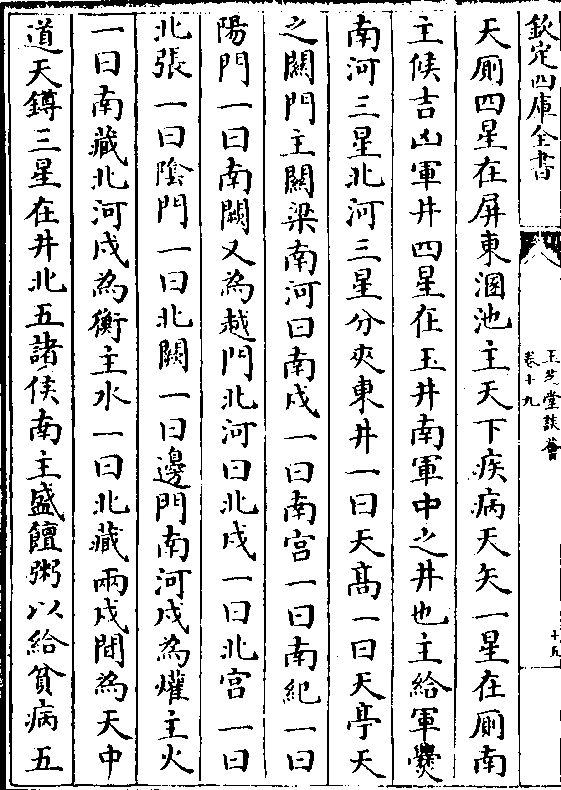 欽定四庫全書
玉芝堂談薈
卷十九
十五
天厠四星在屏東溷池主天下疾病天矢一星在厠南
主候吉凶軍井四星在玉井南軍中之井也主給軍爨
南河三星北河三星分夾東井一曰天髙一曰天亭天
之闕門主關梁南河曰南戍一曰南宫一曰南紀一曰
陽門一曰南闕又為越門北河曰北戍一曰北宫一曰
北張一曰隂門一曰北闕一曰邊門南河戍為爟主火
一曰南藏北河戍為衡主水一曰北藏兩戍間為天中
道天鐏三星在井北五諸侯南主盛饘粥以給貧病五